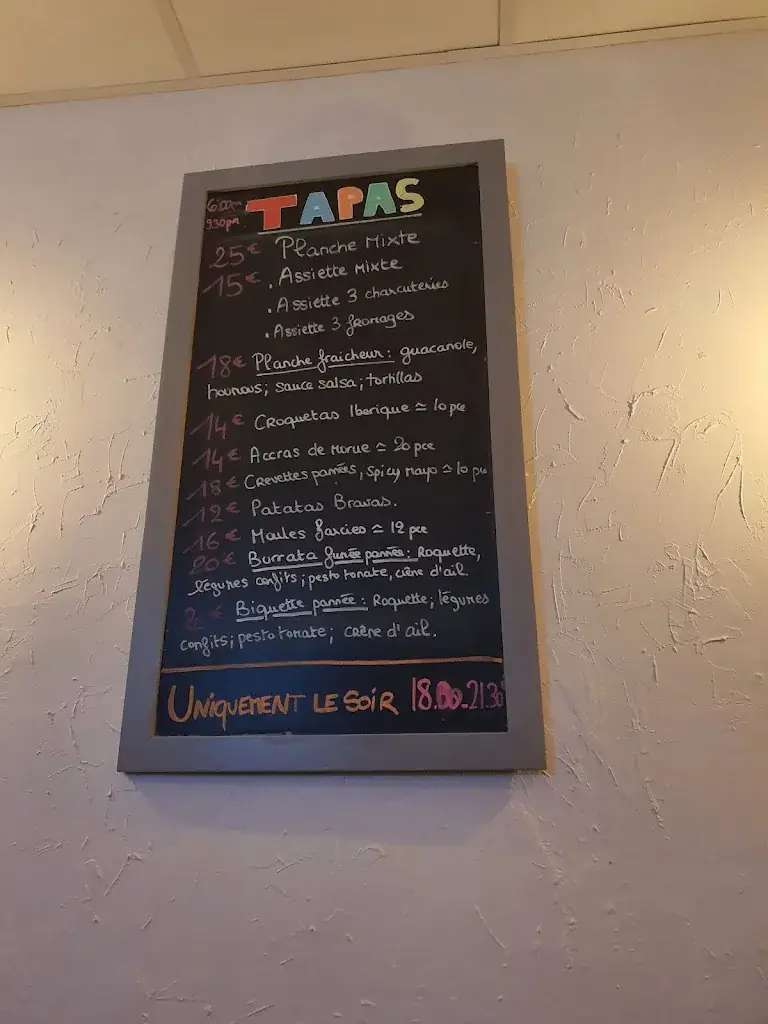 6:00pm
9.30pm
TAPAS
25€ Planche Mixte
15€ . Assiette Mixte
. Assiette 3 charcuteries
. Assiette 3 fromages
18€ Planche fraicheur : guacamole,
houmous ; sauce salsa ; tortillas
14€ Croquetas Iberique ≃ 10 pce
14€ Accras de Morue ≃ 20 pce
18€ Crevettes pannées, spicy mayo ≃ 10 pce
12€ Patatas Bravas.
16€ Moules farcies ≃ 12 pce
20€ Burrata fumée pannée : Roquette,
légumes confits ; pesto tomate, crème d'ail.
€ Biquette pannée : Roquette ; légumes
confits ; pesto tomate ; crème d'ail.
UNIQUEMENT LE SOIR 18.00-21.30